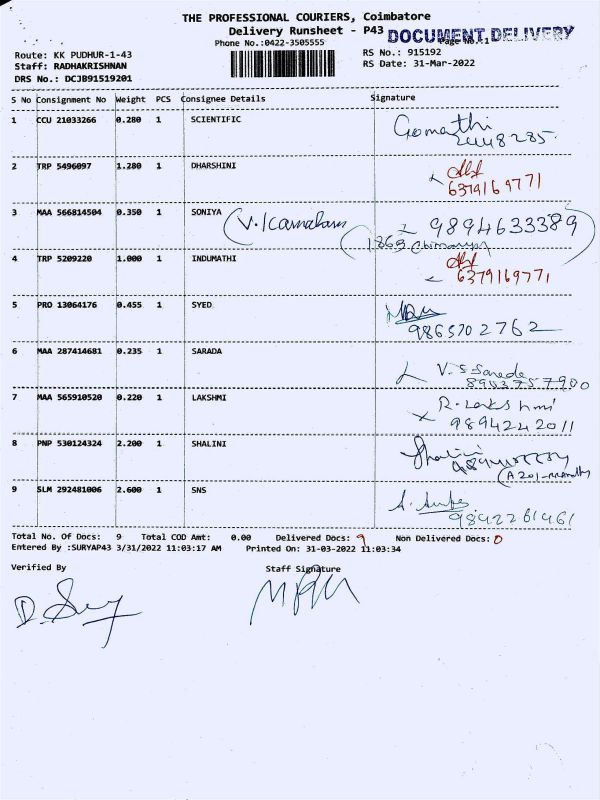 THE PROFESSIONAL COURIERS, Coimbatore
Delivery Runsheet - P43 DOCUMENT DELIVERY
Phone No.:0422-3505555 Page No.:1
Route: KK PUDHUR-1-43 RS No.: 915192
Staff: RADHAKRISHNAN RS Date: 31-Mar-2022
DRS No.: DCJB91519201
S No Consignment No Weight PCS Consignee Details Signature
1 CCU 21033266 0.280 1 SCIENTIFIC Gomathi
2448285.
2 TRP 5496097 1.280 1 DHARSHINI
6379169771
3 MAA 566814504 0.350 1 SONIYA V. Kamalam 9894633389
4 TRP 5209220 1.000 1 INDUMATHI
6379169771
5 PRO 13064176 0.455 1 SYED
9865702762
6 MAA 287414681 0.235 1 SARADA V. S Sarada
8903757900
7 MAA 565910520 0.220 1 LAKSHMI R. Lakshmi
9894242011
8 PNP 530124324 2.200 1 SHALINI Shalini
9 SLM 292481006 2.600 1 SNS
9842261461
Total No. Of Docs: 9 Total COD Amt: 0.00 Delivered Docs: 9 Non Delivered Docs: 0
Entered By :SURYAP43 3/31/2022 11:03:17 AM Printed On: 31-03-2022 11:03:34
Verified By Staff Signature